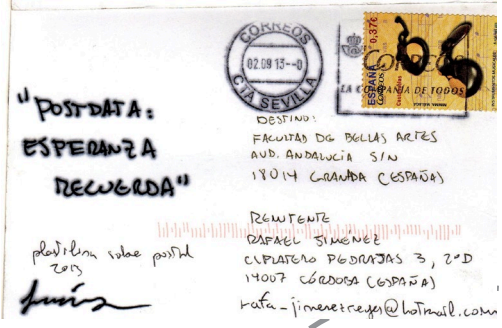 CORREOS
02.09 13
CTA SEVILLA
ESPAÑA
CORREOS
0,37€
LA COMPAÑÍA DE TODOS
"POSTDATA:
ESPERANZA
RECUERDA"
plastilina sobre postal
2013
DESTINO:
FACULTAD DE BELLAS ARTES
AVD. ANDALUCIA S/N
18014 GRANADA (ESPAÑA)
REMITENTE
RAFAEL JIMÉNEZ
C/PLATERO PEDRAJAS 3, 2ºD
14007 CÓRDOBA (ESPAÑA)
rafa_jimenezreyes@hotmail.com